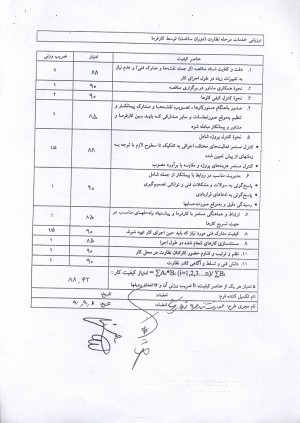 ارزیابی خدمات مرحله نظارت (دوران ساخت) توسط کارفرما
عناصر کیفیت امتیاز ضریب وزنی
۱. دقت و کفایت اسناد مناقصه (از جمله نقشه‌ها و مدارک فنی) و عدم نیاز به تغییرات زیاد در طول اجرای کار ۸۸ ۲
۲. نحوه همکاری مشاور در برگزاری مناقصه ۹۰ ۱
۳. نحوه کنترل کیفی کارها ۹۰ ۲
۴. صدور بهنگام دستورکارها، تصویب نقشه‌ها و مدارک پیمانکار و تنظیم به‌موقع صورتجلسات و سایر مدارکی که باید بین کارفرما و مشاور و پیمانکار مبادله شود ۸۵ ۱
۵. نحوه کنترل پروژه شامل
• کنترل مستمر فعالیت‌های مختلف اجرائی به تفکیک تا سطوح لازم با توجه به زمانهای از پیش تعیین شده
• کنترل مستمر هزینه‌های پروژه و مقایسه با برآورد مصوب ۸۸ ۱۵
۶. مدیریت مناسب در روابط با پیمانکار از جمله شامل
• پاسخ‌گوئی به سوالات و مشکلات فنی و توانائی تصمیم‌گیری
• پاسخ‌گوئی به ادعاهای قراردادی
• رسیدگی دقیق و به‌موقع صورت‌حسابها ۹۰ ۱
۷. ارتباط و هماهنگی مستمر با کارفرما و پیشنهاد راه‌حلهای مناسب در جهت تسریع کارها ۸۵ ۱
۸. کیفیت مدارک فنی مورد نیاز که باید حین اجرای کار تهیه شوند ۹۰ ۱۵
۹. مستندسازی کارهای انجام شده در طول اجرا ۸۵ ۱
۱۰. نظم و ترتیب و تداوم حضور کارکنان نظارت در محل کار ۹۰ ۱
۱۱. دانش فنی و تسلط و آگاهی کادر نظارت ۹۰ ۱
امتیاز کیفیت کار = ΣAᵢ*Bᵢ (i=1,2,3...n)/ ΣBᵢ ۸۸,۴۲
نام تکمیل کننده فرم: امضاء: تاریخ:
نام مجری طرح: امضاء: تاریخ: